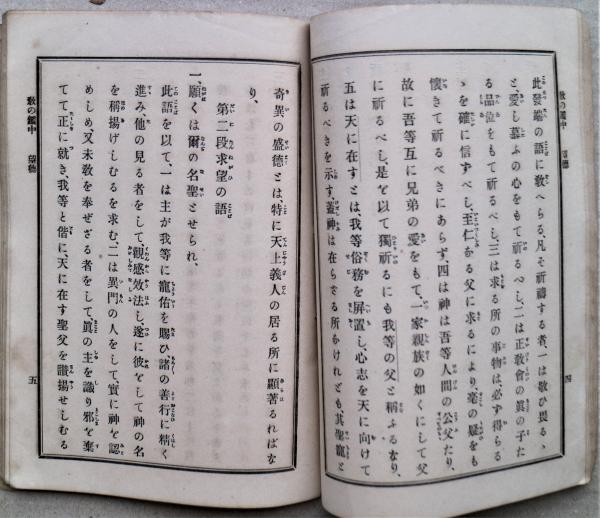 教の鑑中　望德
四
此發端の語に敎へらる、凡そ祈禱する者、一は敬ひ畏る、
と、愛し慕ふの心をもて祈るべし、二は正敎會の眞の子た
る品位をもて祈るべし、三は求る所の事物は、必ず得らる
ゝを確に信ずべし、至仁なる父に求るにより、毫の疑をも
懷きて祈るべきにあらず、四は神は吾等人間の公父たり、
故に吾等互に兄弟の愛をもて、一家親族の如くにして父
に祈るべし、是を以て獨祈るにも我等の父と稱ふるなり、
五は天に在すとは、我等俗務を屏置し、心志を天に向けて
祈るべきを示す、蓋神は在らざる所なけれども、其聖寵と
奇異の盛德とは、特に天上義人の居る所に顯著るればな
り、
第二段求望の語
一、願くは爾の名聖とせられ、
此語を以て、一は主が我等に寵佑を賜ひ諸の善行に精く
進み他の見る者をして、觀感效法し、遂に彼をして神の名
を稱揚げしむるを求む、二は異門の人をして、實に神を認
めしめ、又未敎を奉ぜざる者をして、眞の主を識り邪を棄
てて正に就き、我等と偕に、天に在す聖父を讚揚せしむる
教の鑑中　望德
五